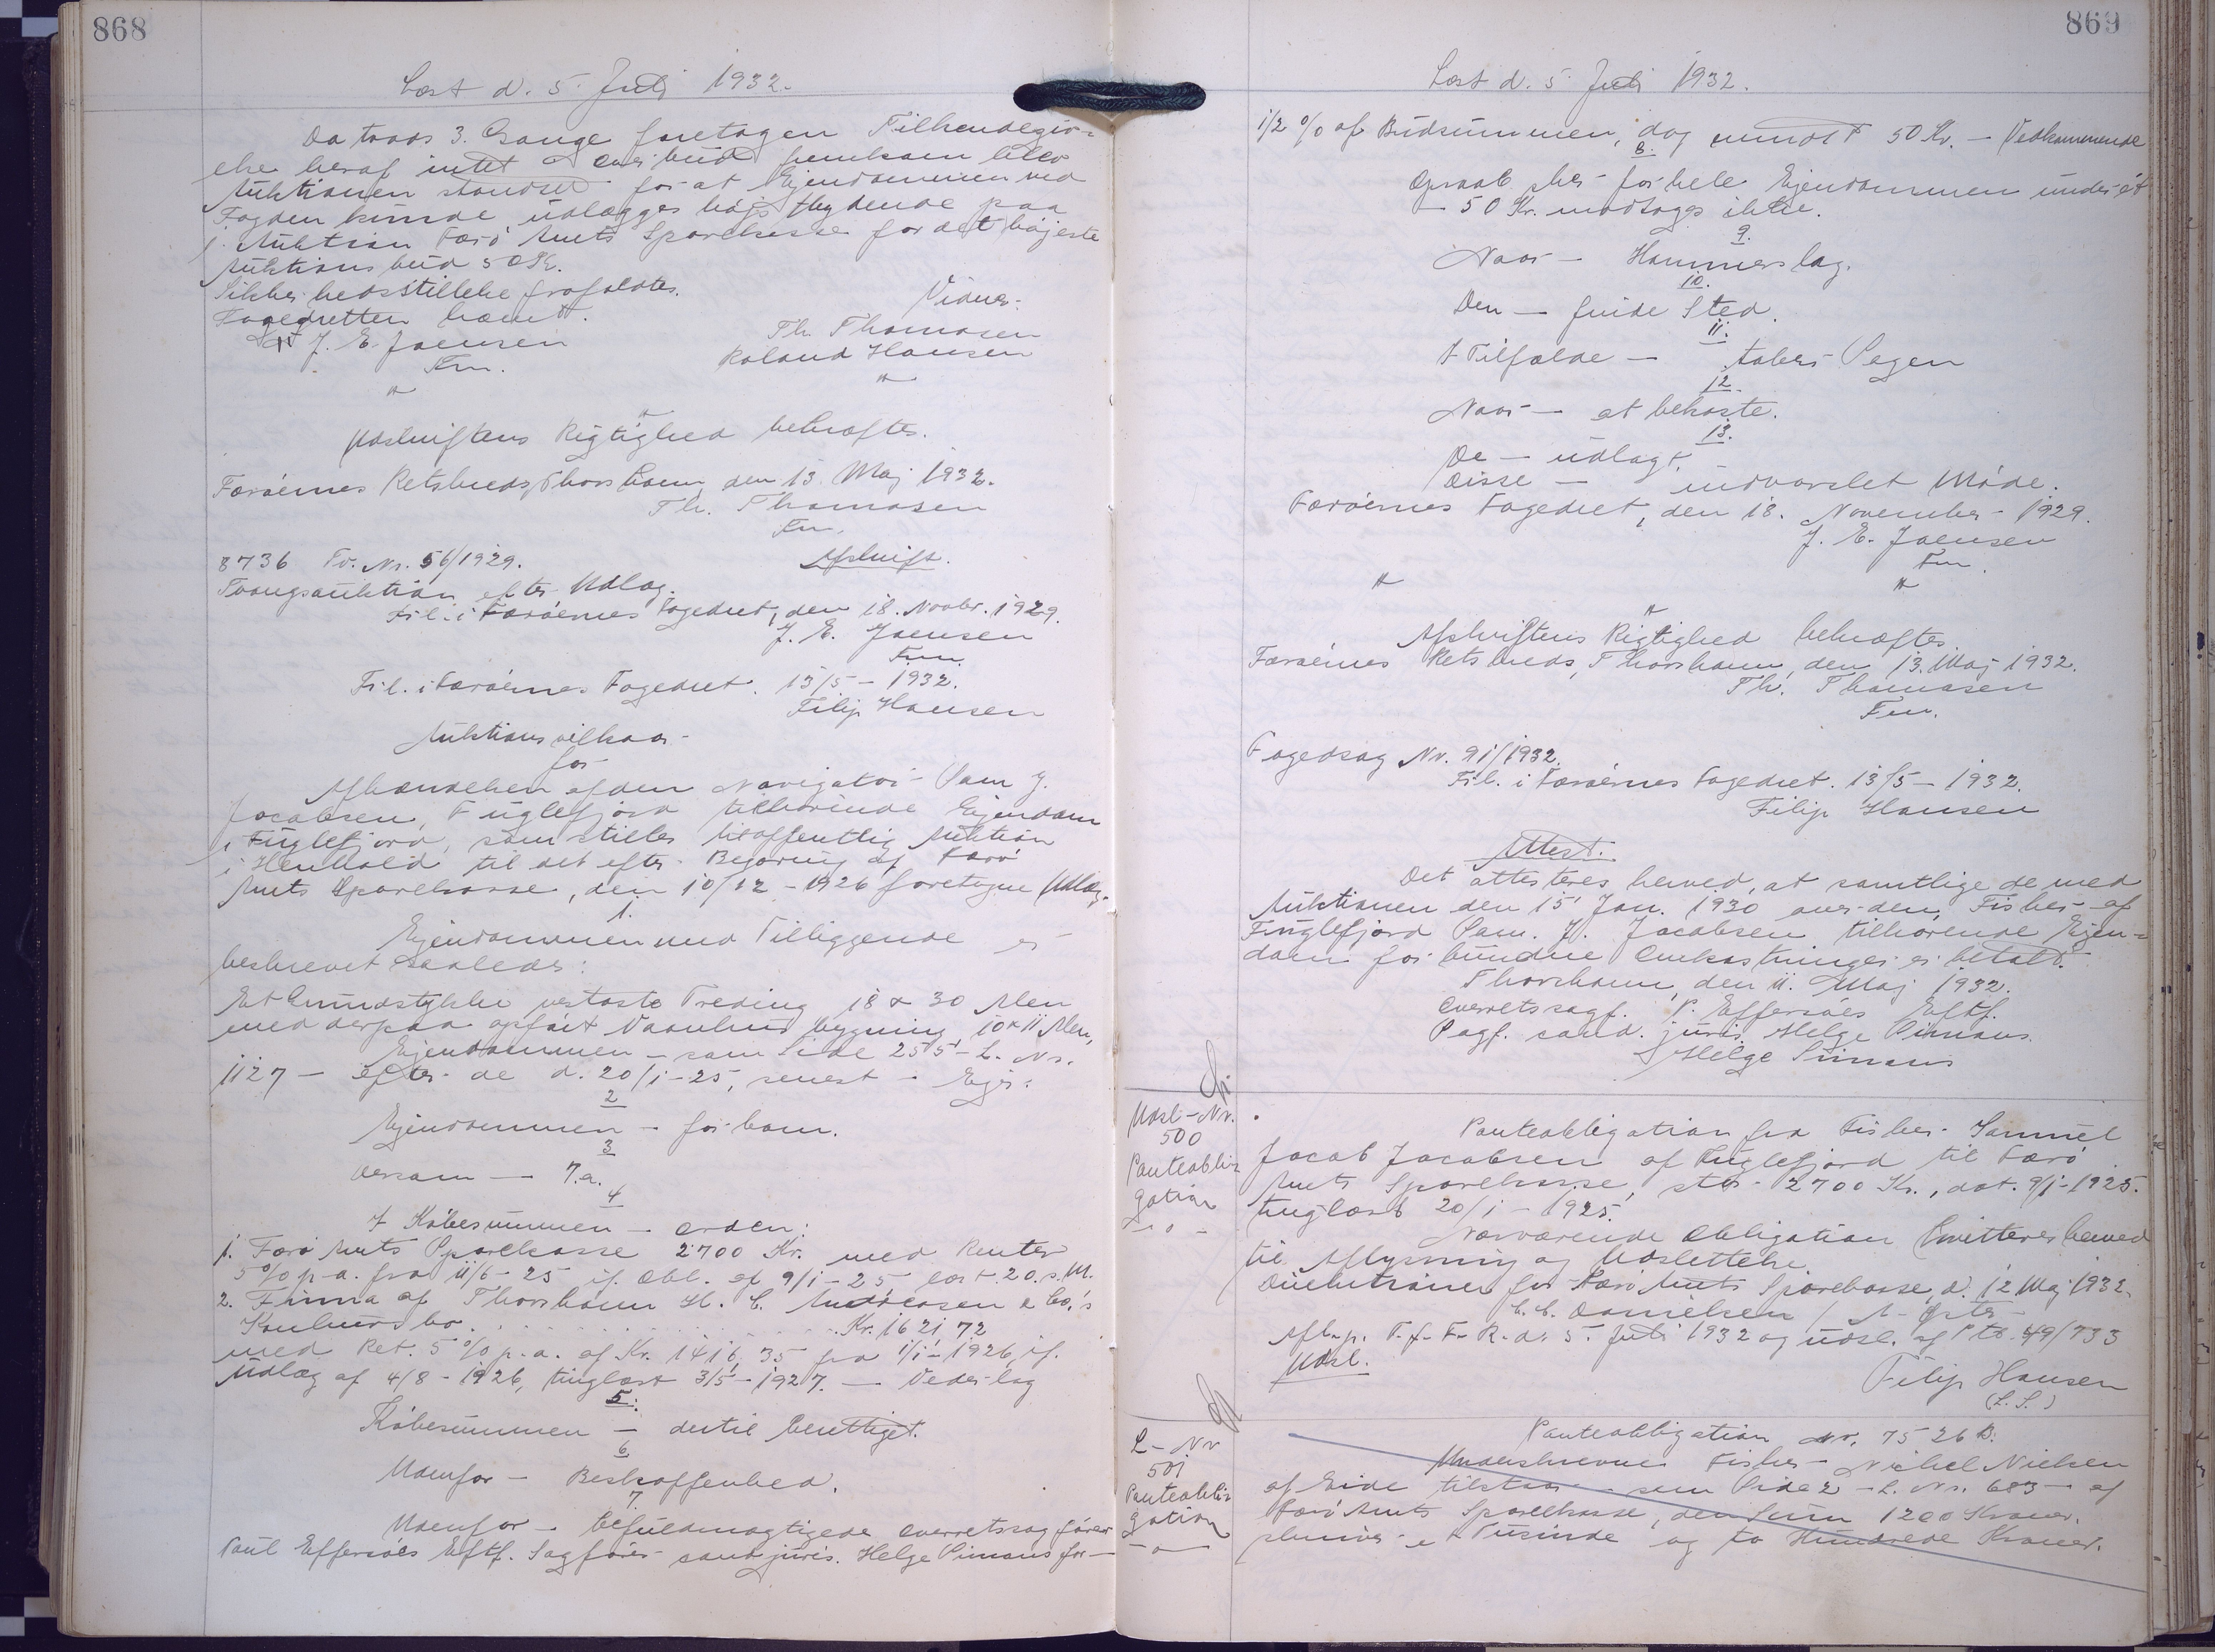 868
Læst d. 5. Juli 1932.
Da trods 3 Gange foretagen Tilkendegiv-
else heraf intet Overbud fremkom blev
Auktionen standset for at Ejendommen ved
Fogden kunde udlægges højstbydende paa
1. Auktion Færø Amts Sparekasse for det højeste
Auktionsbud 50 Kr.
Sikkerhedsstillelse frafaldtes.
Fogedretten hævet.
Vidner:
J. E. Joensen
Fm.
Th. Thomasen
Roland Hansen
"
"
"
Udskriftens Rigtighed bekræftes.
Færøernes Retskreds, Thorshavn, den 13. Maj 1932.
Th. Thomasen
Fm.
8736 Fo. Nr. 56/1929.
Afskrift.
Tvangsauktion efter Udlæg.
Fr.l. i Færøernes Fogedret, den 18. Novbr. 1929.
J. E. Joensen
Fm.
Fr.l. i Færøernes Fogedret. 13/5 - 1932.
Filip Hansen
Auktionsvilkaar
for
Afhændelsen af den Navigatør Sam J.
Jacobsen, Fuglefjord tilhørende Ejendom
i Fuglefjord, som stilles til offentlig Auktion
i Henhold til det efter Begæring af Færø
Amts Sparekasse, den 10/12 - 1926 foretagne Udlæg.
1.
Ejendommen med Tilliggende er
beskrevet saaledes:
Et Grundstykke vestaste Trøding 18 x 30 Alen
med derpaa opført Vaanhus bygning 10 x 11 Alen,
Ejendommen - som Side 255 - L. Nr.
1127 - efter de d. 20/1-25, senest - Ejer:
2
Ejendommen - for ham.
3
Dersom - 7.a.
4
I Købesummen - orden:
1. Færø Amts Sparekasse 2700 Kr. med Renter
5 % p.a. fra 11/6 - 25 if. Obl. af 9/1 - 25 læst 20. s. M.
2. Firma af Thorshavn H. C. Andreasen & Co.'s
Konkursbo . . . . . . . . . . Kr. 1621,72
med Ret. 5 % p.a. af Kr. 1416,35 fra 1/1 - 1926, if.
Udlæg af 4/8 - 1926, tinglæst 3/5 - 1927. - Vederlag
5.
Købesummen - dertil berettiget.
6.
Udenfor - Beskaffenhed.
7.
Udenfor - befuldmægtigede Overretssagfører
Poul Effersøes Eftf. Sagfører cand. juris. Helge Simans for -
869
Læst d. 5 Juli 1932.
1/2 % af Budsummen, dog mindst 50 Kr. - Vedkommende
8.
Opraab sker for hele Ejendommen under ét
- 50 Kr. modtages ikke.
9.
Naar - Hammerslag.
10.
Den - finde Sted.
11.
I Tilfælde - taber Sagen
12.
Naar - at bekoste.
13.
De - udlagt.
Disse - indvarslet Møde.
Færøernes Fogedret, den 18. November 1929.
J. E. Joensen
Fm.
"
"
"
Afskriftens Rigtighed bekræftes.
Færøernes Retskreds, Thorshavn, den 13. Maj 1932.
Th. Thomasen
Fm.
Fogedsag Nr. 91/1932.
Fr.l. i Færøernes Fogedret. 13/5 - 1932.
Filip Hansen
Attest.
Det attesteres herved, at samtlige de med
Auktionen den 15' Jan. 1930 over den, Fisker af
Fuglefjord Sam. J. Jacobsen tilhørende Ejen-
dom forbundne Omkostninger er betalt.
Thorshavn, den 11. Maj 1932.
Overretssagf. P. Effersøes Eftf.
Sagf. cand. juris. Helge Simans.
Helge Simans
Udsl - Nr.
500
Panteobli-
gation
- o -
Panteobligation fra Fisker Samuel
Jacob Jacobsen af Fuglefjord til Færø
Amts Sparekasse, stor 2700 Kr., dat. 9/1-1925.
tinglæst 20/1 - 1925.
Nærværende Obligation kvitteres herved
til Aflysning og Udslettelse.
Direktionen for Færø Amts Sparekasse, d. 12 Maj 1932.
C. C. Danielsen /
Afl. p. T. f. F. R. d. 5. Juli 1932 og udsl. af Ptb. 49/733
Udsl.
Filip Hansen
(L. S.)
L - Nr
501
Panteobli-
gation
- o -
Panteobligation Nr. 7526 B.
Underskrevne Fisker Nickel Nielsen
af Eide tilstaar - som Side 2 - L. Nr. 683 - af
Færø Amts Sparekasse, den Sum 1200 Kroner.
skriver et Tusinde og to Hundrede Kroner.